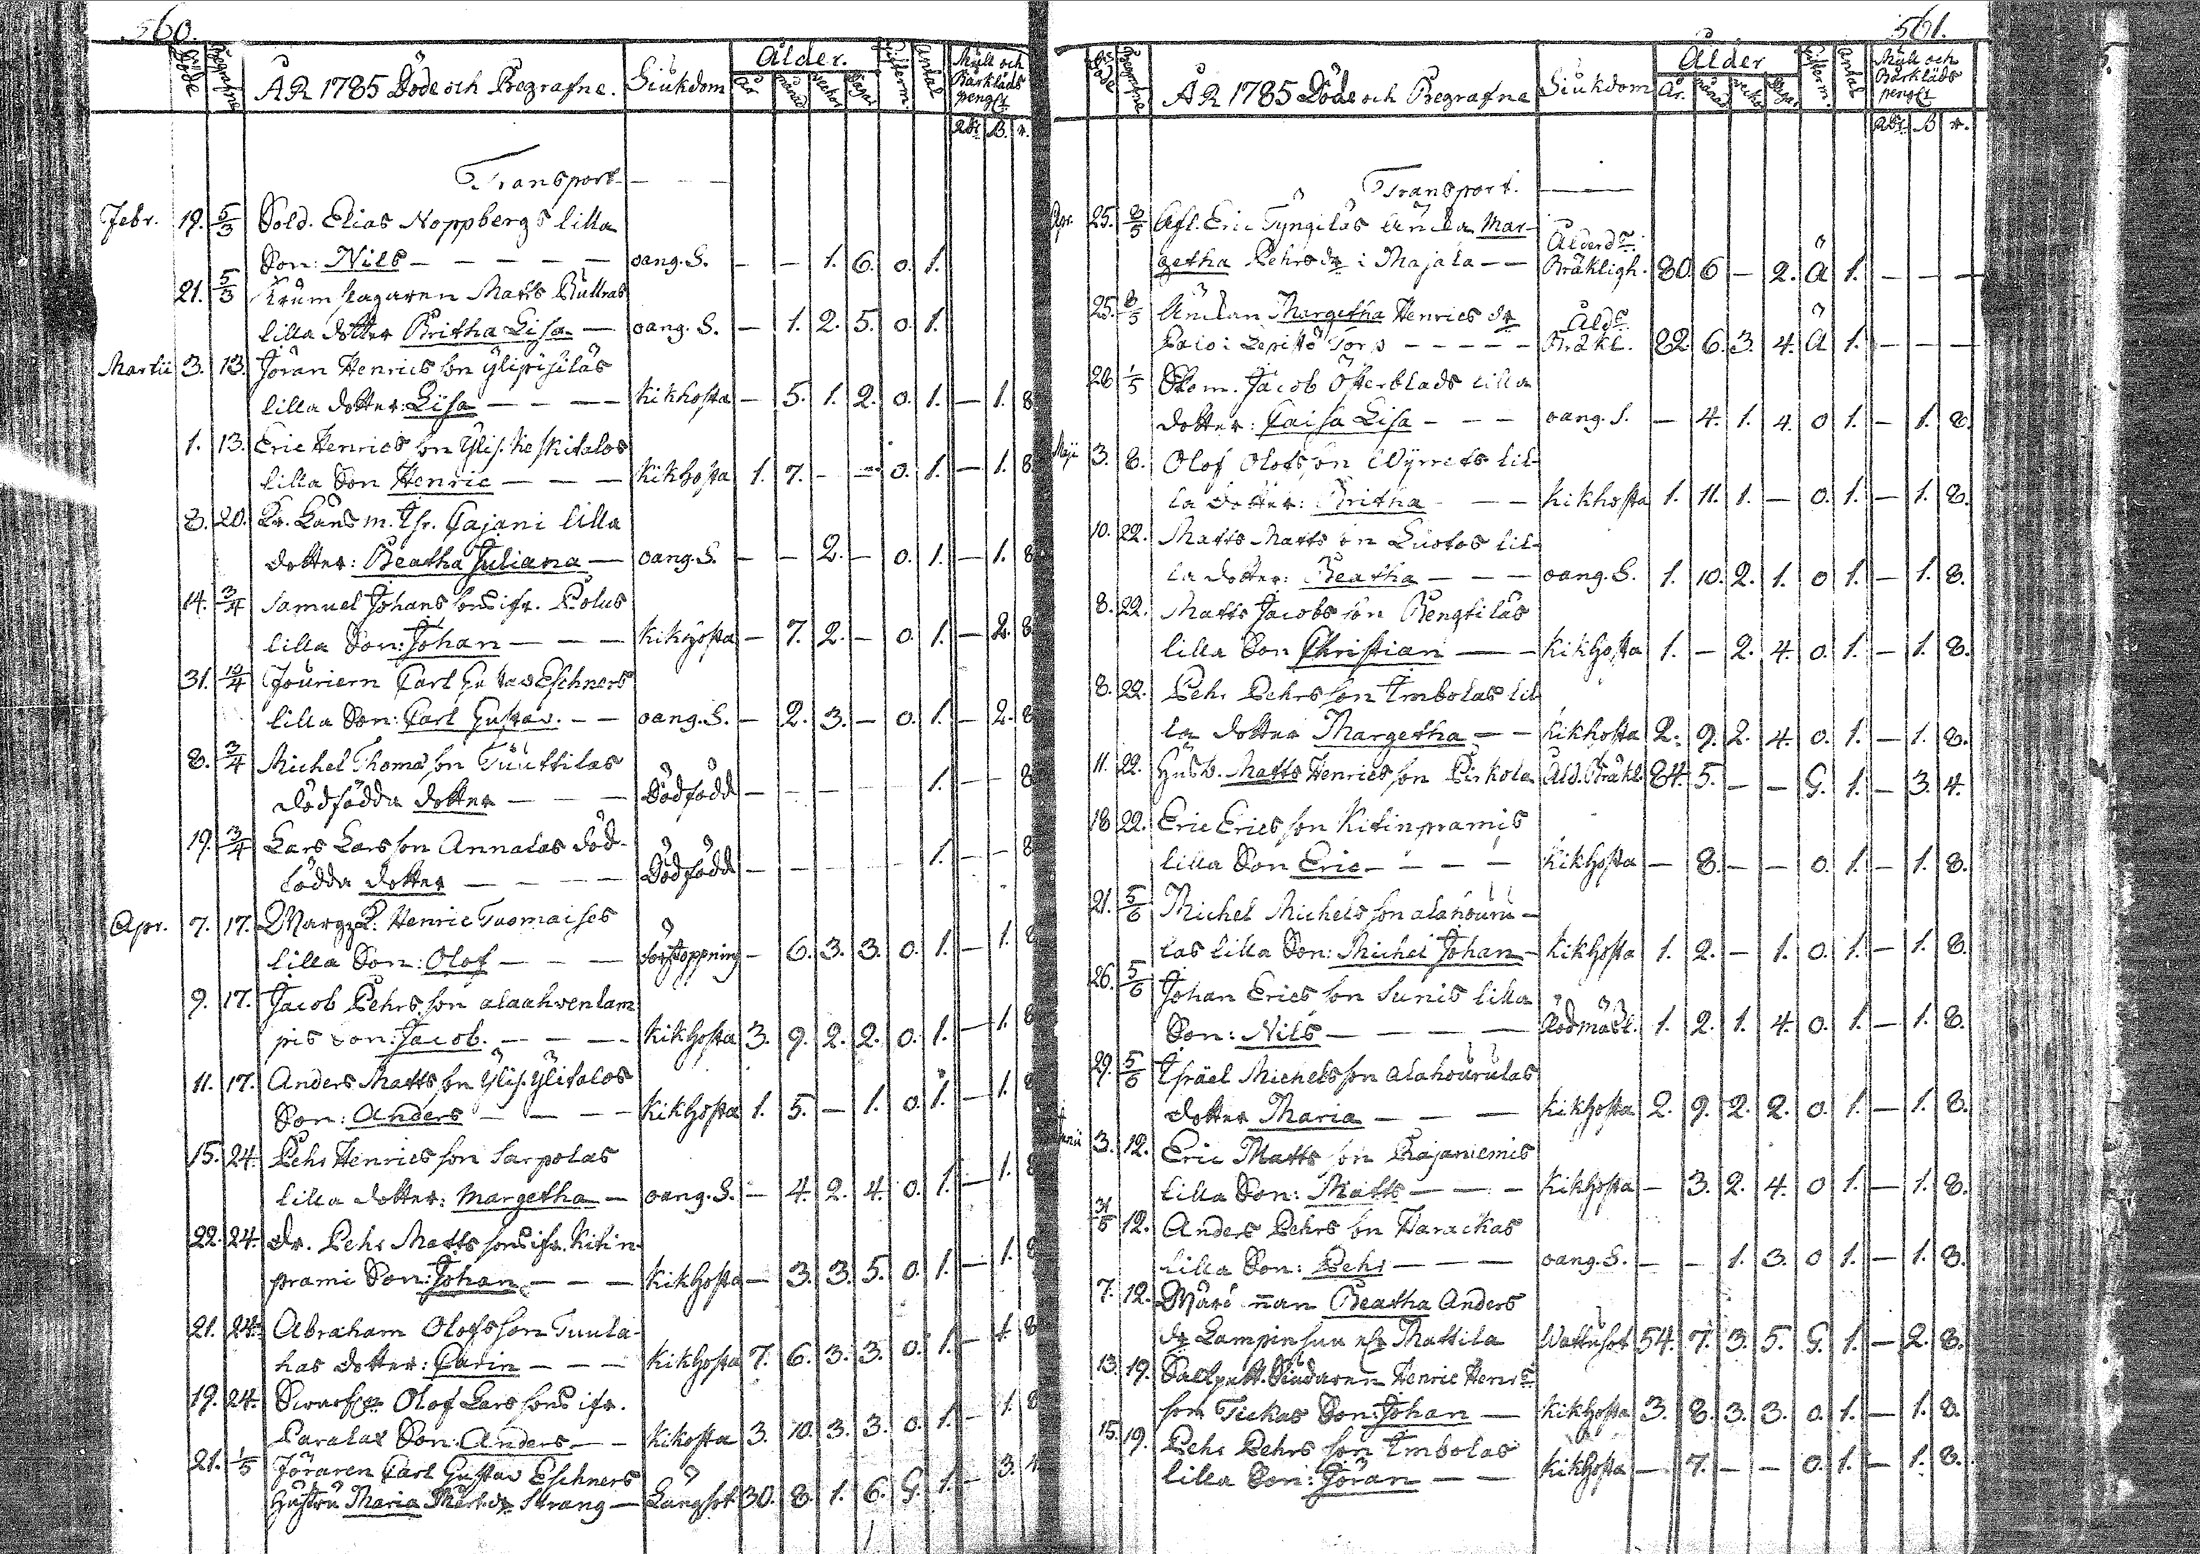 560.
Döde Begrafne ÅR 1785 Döde och Begrafne. Siukdom Ålder. År månad wekor dagar Antal Mull och Bårkläds peng:r
Rd:r B. r.
Transport — — —
Febr. 19. 5/3 Sold. Elias Noppbergs lilla
Son: Nils — — — — — oang. S. — — 1. 6. o. 1.
21. 5/3 Matts
lilla dotter Britha Lisa — oang. S. — 1. 2. 5. o. 1.
Martii 3. 13. Jöran Henrics son Ylipisiläs
lilla dotter: Lisa — — — — Kikhosta — 5. 1. 2. o. 1. — 1. 8
1. 13. Eric Henrics son Ylis. Keskitalos
lilla Son Henric — — — Kikhosta 1. 7. — — o. 1. — 1. 8.
8. 20. Cajani lilla
dotter: Beatha Juliana — oang. S. — — 2. — o. 1. — 1. 8
14. 3/4 Samuel Johans son ifr. Polus
lilla Son: Johan — — — Kikhosta — 7. 2. — o. 1. — 2. 8
31. 10/4 Fouriern Carl Gustav Eschners
lilla Son: Carl Gustav. — — oang. S. — 2. 3. — o. 1. — 2. 8
8. 3/4 Michel Thoma son Tuuttilas
dödfödda dotter — — — Dödfödd — — — — 1. — 8
19. 3/4 Lars Lars son Annalas död-
födda dotter — — — Dödfödd — — — — — 1. — — 8
Apr. 7. 17. Henric Tuomaises
lilla Son: Olof — — — förstoppning — 6. 3. 3. o. 1. — 1. 8
9. 17. Jacob Pehrs son alaahvenlam
pis son: Jacob. — — — Kikhosta 3. 9. 2. 2. o. 1. — 1. 8
11. 17. Anders Matts son Ylis. Ylitalos
Son: Anders — — — Kikhosta 1. 5. — 1. o. 1. — 1. 8
15. 24. Pehr Henrics son Sarpolas
lilla dotter: Margetha — oang. S. — 4. 2. 4. o. 1. — 1. 8
22. 24. Dr. Pehr Matts son ifr. Kitin
prami Son: Johan — — — Kikhosta — 3. 3. 5. o. 1. — 1. 8
21. 24. Abraham Olofs son Tuula-
has dotter: Carin — — — Kikhosta 7. 6. 3. 3. o. 1. — 1. 8
19. 24. Olof Lars son ifr.
Paralas Son: Anders — — Kikosta 3. 10. 3. 3. o. 1. — 1. 8
21. 1/5 Carl Gustav Eschners
Hustru Maria Mårt. dr Strang — Lungsot 30. 8. 1. 6. G. 1. — 3. 4
561.
Döde Begrafne ÅR 1785 Döde och Begrafne Siukdom Ålder År. månad wekor dagar Antal Mull och Bårkläds peng:r
Rd:r B r.
Transport. ———
Apr. 25. 8/5 Afl. Eric Tyngiläs Änka Mar-
getha Pehrs dr i Majala — — Ålderd:s Bräkligh. 80. 6 — 2. Ä 1. — — —
25. 8/5 Änkan Margetha Henrics dr
Palo i Lepistö Torp — — — — — Åld:s Bräkl. 82. 6. 3. 4. Ä 1. — — —
28 1/5 Skom. Jacob Österblads lilla
dotter: Caisa Lisa — — — oang. S. — 4. 1. 4. o 1. — 1. 8.
Maji 3. 8. Olof Olofs son Wyrrets lil-
la dotter: Britha — — — Kikhosta 1. 11. 1. — o. 1. — 1. 8.
10. 22. Matts Matts son Luotos lil-
la dotter: Beatha — — — oang. S. 1. 10. 2. 1. o 1. — 1. 8.
8. 22. Matts Jacobs son Bengtiläs
lilla Son Christian — — Kikhosta 1. — 2. 4. o. 1. — 1. 8.
8. 22. Pehr Pehrs son Imbolas lil
la dotter Margetha — — Kikhosta 2. 9. 2. 4. o. 1. — 1. 8.
11. 22. Husb. Matts Henrics son Pirkola Åld. Bräkl. 84. 5. — — G. 1. — 3. 4.
18 22. Eric Erics son Kitinpramis
lilla Son Eric — — — — Kikhosta — 8. — — o. 1. — 1. 8.
21. 5/6 Michel Michels son alahouru-
las lilla Son: Michel Johan — Kikhosta 1. 2. — 1. o. 1. — 1. 8.
26. 5/6 Johan Erics son Sunis lilla
Son: Nils — — — — Rödmäsl. 1. 2. 1. 4. o. 1. — 1. 8.
29. 5/6 Israel Michels son alahourulas
dotter Maria — — — Kikhosta 2. 9. 2. 2. o. 1. — 1. 8.
Junii 3. 12. Eric Matts son Rajaniemis
lilla Son: Matts — — — Kikhosta — 3. 2. 4. o 1. — 1. 8.
31/5 12. Anders Pehrs son Harackas
lilla Son: Pehr — — — oang. S. — — 1. 3. o 1. — 1. 8.
7. 12. Beatha Anders
dr Lampinsuu Mattila Wattusot 54. 7. 3. 5. G. 1. — 2. 8.
13. 19. Salpett. Siudaren Henric Henr:s
son Tickas Son: Johan — Kikhosta 3. 8. 3. 3. o. 1. — 1. 8.
15. 19. Pehr Pehrs son Imbolas
lilla Son: Jöran — — Kikhosta — 7. — — o. 1. — 1. 8.